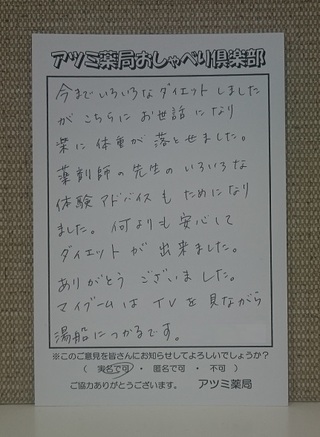 アツミ薬局おしゃべり倶楽部
今までいろいろなダイエットしました
がこちらにお世話になり
楽に体重が落とせました。
薬剤師の先生のいろいろな
体験アドバイスもためになり
ました。何よりも安心して
ダイエットが出来ました。
ありがとうございました。
マイブームはTVを見ながら
湯船につかるです。
※このご意見を皆さんにお知らせしてよろしいでしょうか？
（ 実名で可 ・ 匿名で可 ・ 不可 ）
ご協力ありがとうございます。 アツミ薬局